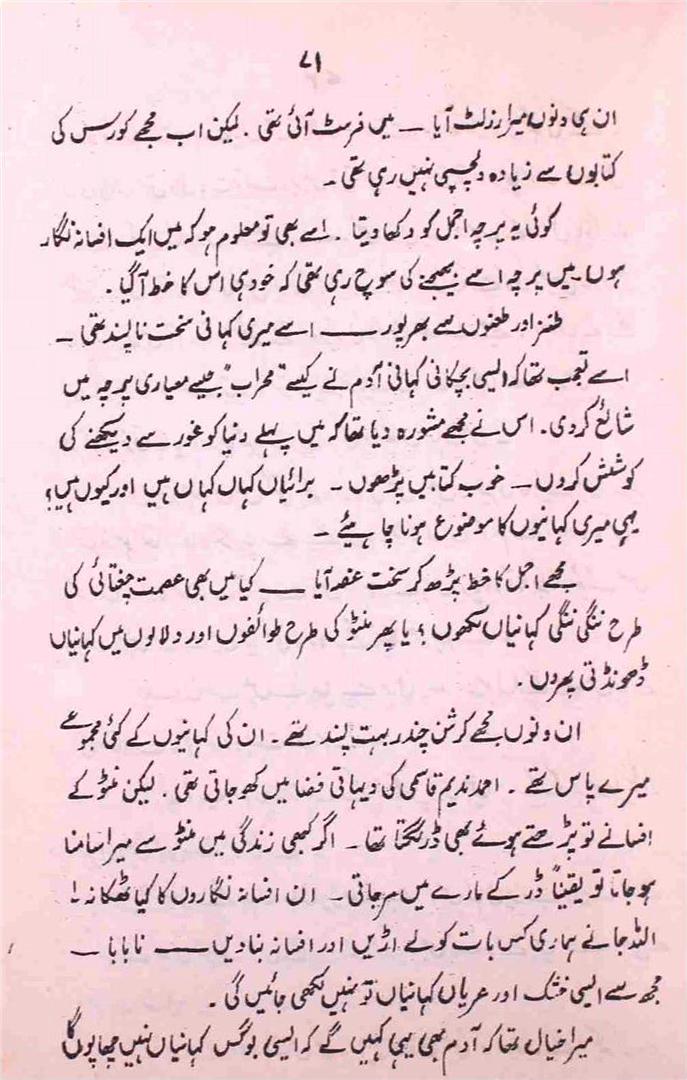 ۷۱
ان ہی دنوں میرا رزلٹ آیا ــ میں فرسٹ آئی تھی ۔ لیکن اب مجھے کورس کی
کتابوں سے زیادہ دلچسپی نہیں رہی تھی ۔
کوئی یہ پرچہ اجمل کو دکھا دیتا ۔ اسے بھی تو معلوم ہو کہ میں ایک افسانہ نگار
ہوں ۔ میں پرچہ اسے بھیجنے کی سوچ رہی تھی کہ خود ہی اس کا خط آ گیا ۔
طنز اور طعنوں سے بھرپور ــــ اسے میری کہانی سخت ناپسند تھی ــ
اسے تعجب تھا کہ ایسی بچکانی کہانی آدم نے کیسے "محراب" جیسے معیاری پرچہ میں
شائع کر دی ۔ اس نے مجھے مشورہ دیا تھا کہ میں پہلے دنیا کو غور سے دیکھنے کی
کوشش کروں ــ خوب کتابیں پڑھوں ــ برائیاں کہاں کہاں ہیں اور کیوں ہیں؟
یہی میری کہانیوں کا موضوع ہونا چاہیئے ــ
مجھے اجمل کا خط پڑھ کر سخت غصہ آیا ــــ کیا میں بھی عصمت چغتائی کی
طرح ننگی ننگی کہانیاں لکھوں ؟ یا پھر منٹو کی طرح طوائفوں اور دلالوں میں کہانیاں
ڈھونڈتی پھروں ۔
ان دنوں مجھے کرشن چندر بہت پسند تھے ۔ ان کی کہانیوں کے کئی مجموعے
میرے پاس تھے ۔ احمد ندیم قاسمی کی دیہاتی فضا میں کھو جاتی تھی ۔ لیکن منٹو کے
افسانے تو پڑھتے ہوئے بھی ڈر لگتا تھا ۔ اگر کبھی زندگی میں منٹو سے میرا سامنا
ہو جاتا تو یقیناً ڈر کے مارے میں مر جاتی ۔ ان افسانہ نگاروں کا کیا ٹھکانہ !
اللہ جانے ہماری کس بات کو لے اڑیں اور افسانہ بنا دیں ــــ نا بابا ــ
مجھ سے ایسی خشک اور عریاں کہانیاں تو نہیں لکھی جائیں گی ۔
میرا خیال تھا کہ آدم بھی یہی کہیں گے کہ ایسی بوگس کہانیاں نہیں چھاپوں گا